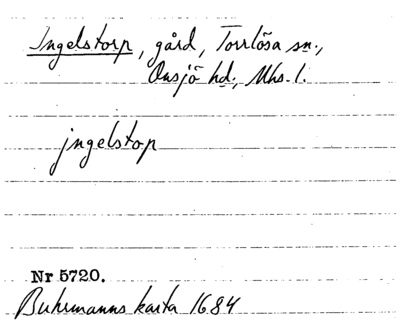 Ingelstorp, gård, Torrlösa sn.,
Onsjö hd., Mhs. l.
jngelstop
Nr 5720.
Buhrmanns karta 1684